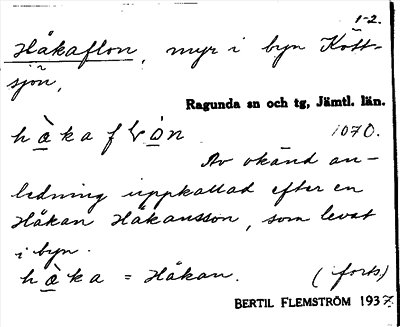 1-2.
Håkaflon, myr i byn Kött-
sjön,
Ragunda sn och tg, Jämtl. län.
1070.
Av okänd an-
ledning uppkallad efter en
Håkan Håkansson, som levat
i byn.
hà̱ka = Håkan. (forts)
BERTIL FLEMSTRÖM 1937.